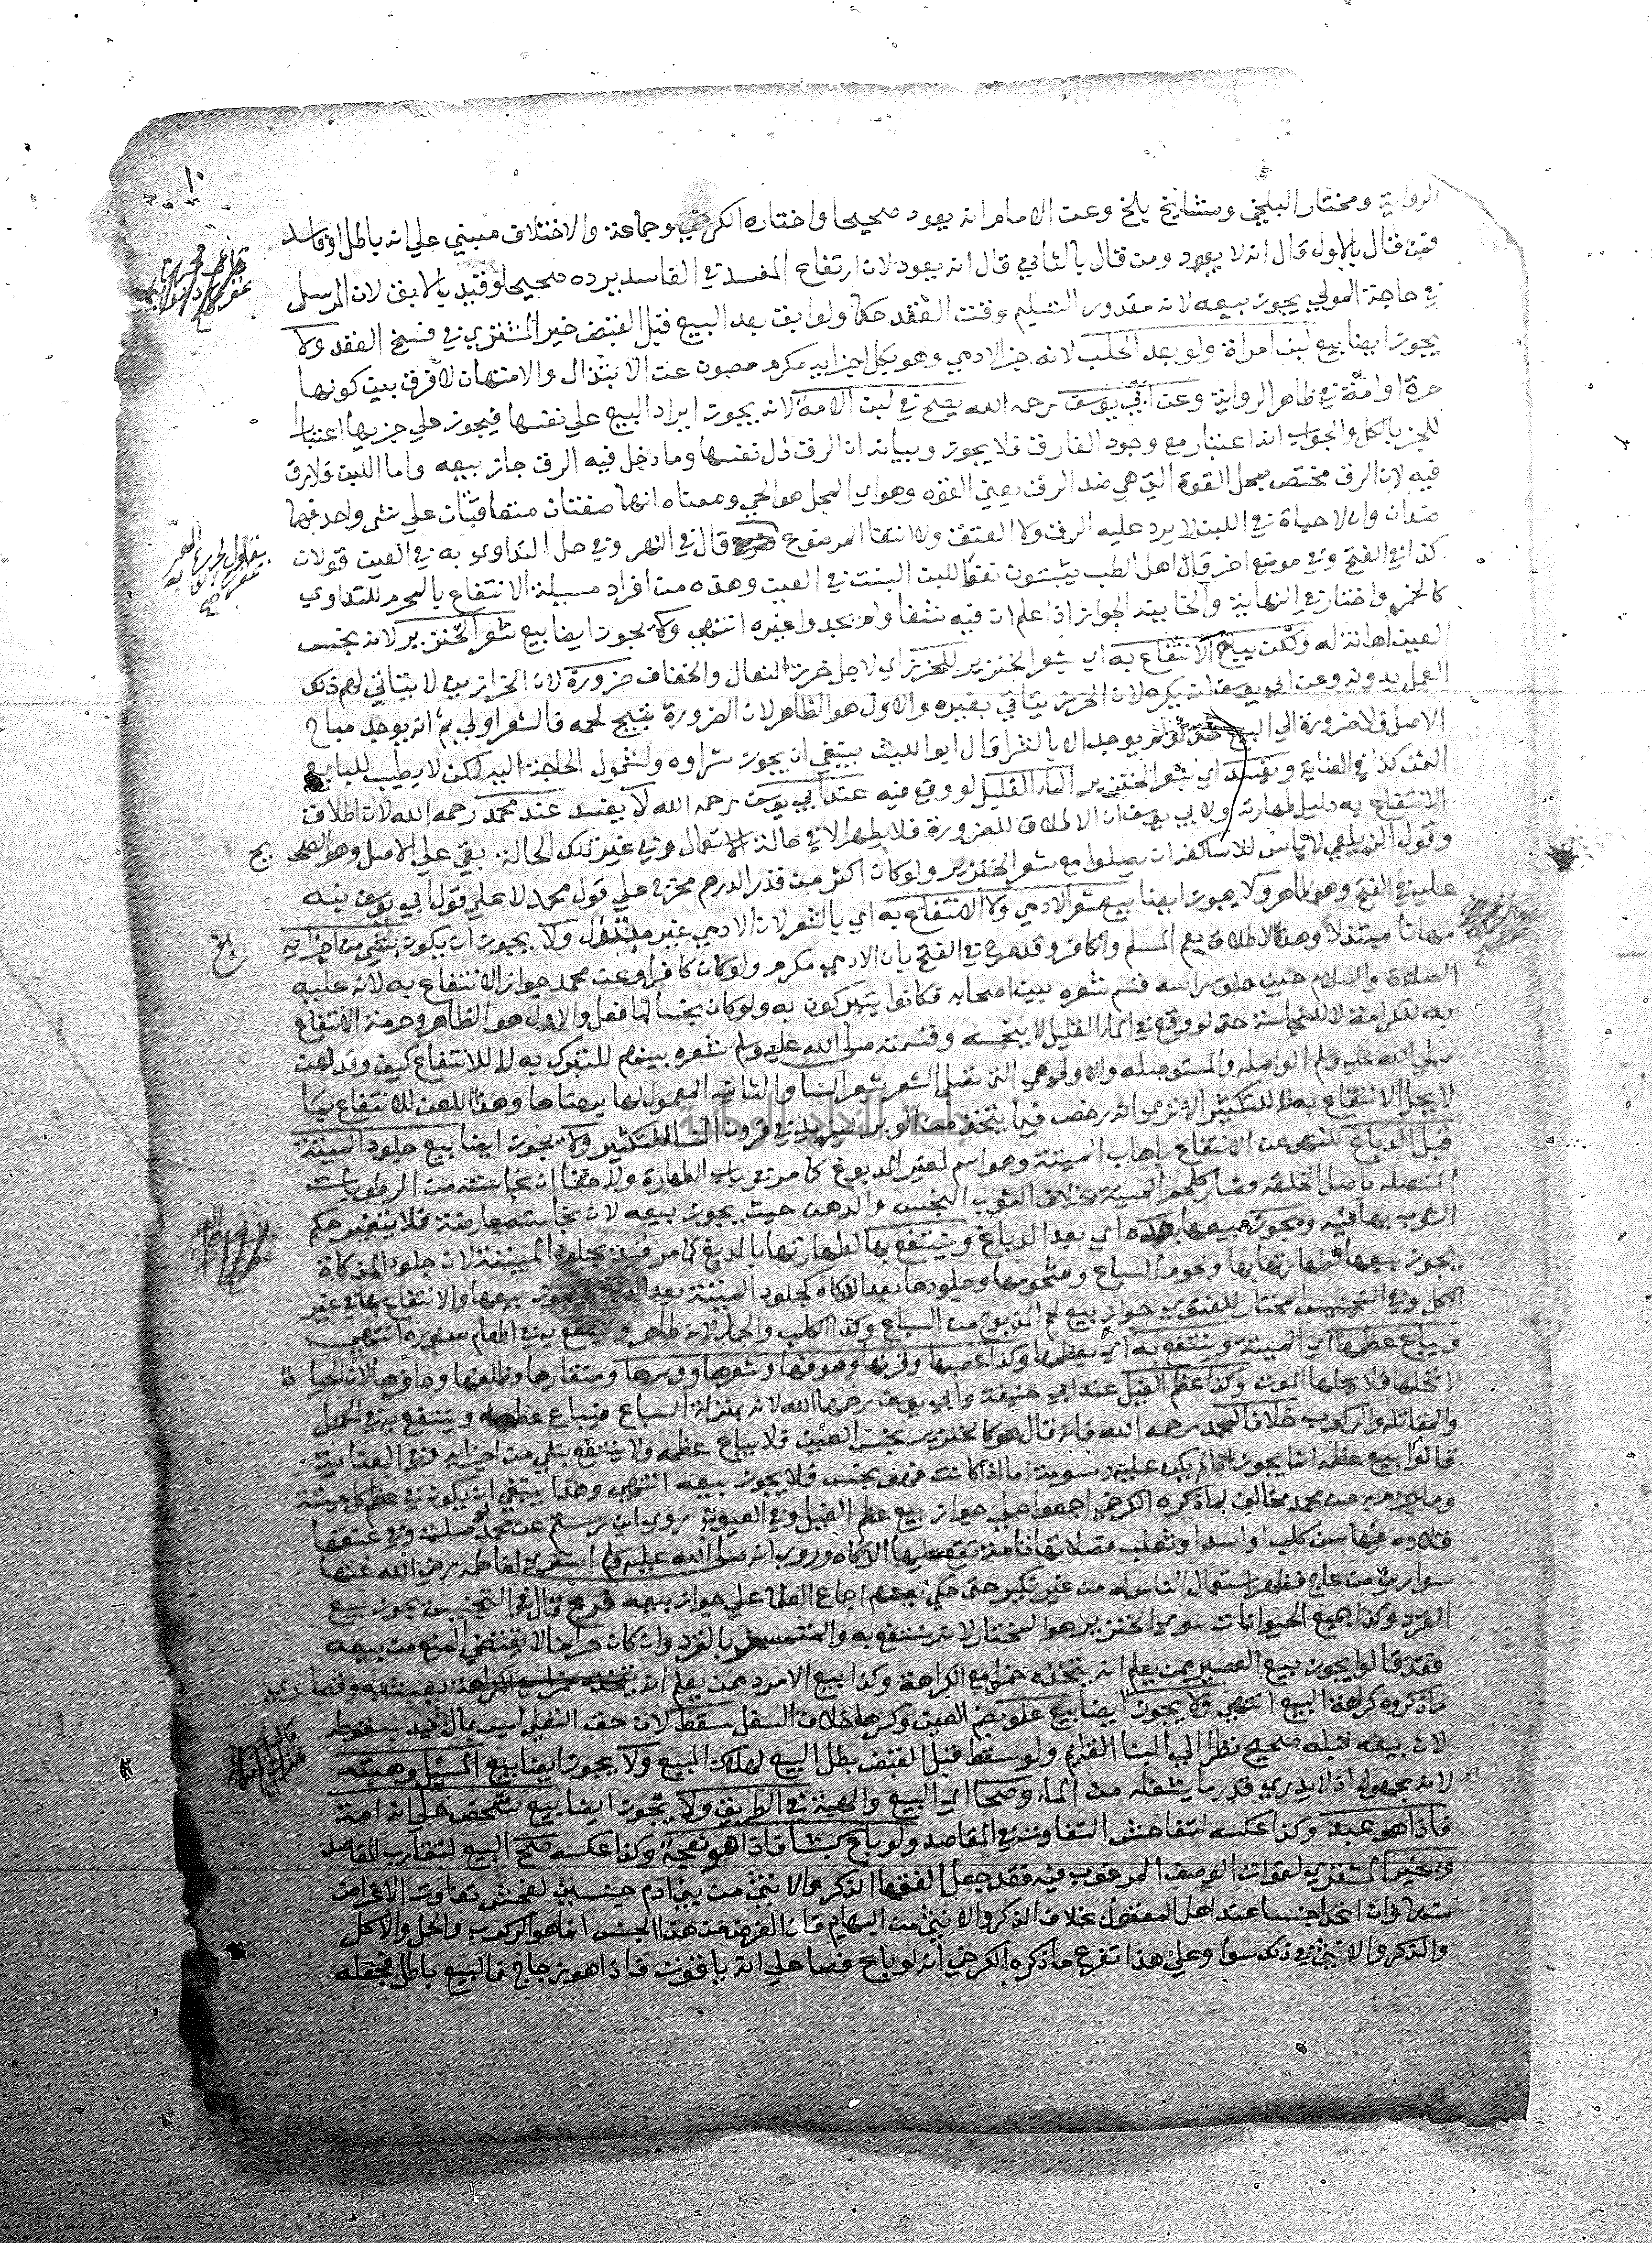 ١٠
الرواية ومختار البلخي ومشايخ بلخ وعن الامام انه يعود صحيحا واختاره الكرخي وجماعة والاختلاف مبني علي انه باطل او فاسد
فمن قال بالاول قال انه لا يعود ومن قال بالثاني قال انه يعود لان ارتفاع المفسد في الفاسد يرده صحيحا وقيد بالابق لان المرسل
في حاجة المولي يجوز بيعه لانه مقدور التسليم وقت العقد حكما ولو ابق بعد البيع قبل القبض خير المشتري في فسخ العقد ولا
يجوز ايضا بيع لبن امراة ولو بعد الحلب لانه جز الادمي وهو بكل اجزايه مكرم مصون عن الابتذال والامتهان لا فرق بين كونها
حرة او امة في ظاهر الرواية وعن ابي يوسف رحمه الله يصح في لبن الامة لانه يجوز ايراد البيع علي نفسها فيجوز علي جزيها اعتبارا
للجز بالكل والجواب انه اعتبار مع وجود الفارق فلا يجوز وبيانه ان الرق حل نفسها وما دخل فيه الرق جاز بيعه واما اللبن فلا رق
فيه لان الرق مختص بمحل القوة التي هي ضد الرق يعني العتق وهو اي المحل هو الحي ومعناه انهما صفتان متعاقبتان علي شي واحد فهما
ضدان ولا حياة في اللبن لا يرد عليه الرق ولا العتق ولا انتفا المرضوع قال في النهر وفي حل التداوي به في العين قولان
كذا في الفتح وفي موضع اخر قال اهل الطب يثبتون نفعا للبن البنت في العين وهذه من افراد مسيلة الانتفاع بالمحرم للتداوي
كالخمر واختار في النهاية والخانية الجواز اذا علم ان فيه شفا ولم يجد دوا غيره انتهي ولا يجوز ايضا بيع شعر الخنزير لانه نجس
العين اهانة له ولكن يباح الانتفاع به اي بشعر الخنزير للخرز اي لاجل خرز النعال والخفاف ضرورة لان الخرازين لا يتاتي لهم ذلك
العمل بدونه وعن ابي يوسف انه يكره لان الخرز يتاتي بغيره والاول هو الظاهر لان الضرورة تبيح لحمه فالشعر اولي ثم انه يوجد مباح
الاصل فلا ضرورة الي البيع حتي لو لم يوجد الا بالشرا قال ابو الليث ينبغي ان يجوز شراوه ولشمول الحاجة اليه لكن لا يطيب للبايع
الثمن كذا في العناية ويفسد اي شعر الخنزير الماء القليل لو وقع فيه عند ابي يوسف رحمه الله لا يفسد عند محمد رحمه الله لان اطلاق
الانتفاع به دليل طهارته ولابي يوسف ان الاطلاق للضرورة فلا يظهر الا في حالة الاستعمال وفي غير تلك الحالة بقي علي الاصل وهو الصحيح
وقول الزيلعي لا باس للاساكفة ان يصلوا مع شعر الخنزير ولو كان اكثر من قدر الدرهم مخرج علي قول محمد لا علي قول ابي يوسف نبه
عليه في الفتح وهو ظاهر ولا يجوز ايضا بيع شعر الادمي ولا الانتفاع به اي بالشعر لان الادمي غير مبتذل ولا يجوز ان يكون شي من اجزايه
مهانا مبتذلا وهذا الاطلاق يعم المسلم والكافر وقد صرح في الفتح بان الادمي مكرم ولو كان كافرا وعن محمد جواز الانتفاع به لانه عليه
الصلاة والسلام حين حلق راسه قسم شعره بين اصحابه فكانوا يتبركون به ولو كان نجسا لما فعل والاول هو الظاهر وحرمة الانتفاع
به للكرامة لا للنجاسة حتي لو وقع في الماء القليل لا ينجسه وقسمته صلي الله عليه وسلم شعره بينهم للتبرك به لا للانتفاع كيف وقد لعن
صلي الله عليه وسلم الواصله والمستوصله والاولي هي التي تصل الشعر بشعر النسا والثانية المعمول لها برضاها وهذا اللعن للانتفاع بما
لا يحل الانتفاع به لا للتكثير الا تري انه رخص فيما يتخذ من الوبر ليزيد في قرون النسا للتكثير ولا يجوز ايضا بيع جلود الميتة
قبل الدباغ للنهي عن الانتفاع باهاب الميتة وهو اسم لغير المدبوغ كما مر في باب الطهارة ولا خفا ان نجاسته من الرطوبات
المتصله باصل الخلقه فصار كلحم الميتة بخلاف الثوب النجس والدهن حيث يجوز بيعه لان نجاسته عارضة فلا يتغير حكم
الثوب بها فيه ويجوز بيعها بعده اي بعد الدباغ وينتفع بها لطهارتها بالدبغ كما مر قيد بجلود الميتة لان جلود المذكاة
يجوز بيعها لطهارتها بها ولحوم السباع وشحومها وجلودها بعد الذكاه كجلود الميتة بعد الدبغ فيجوز بيعها والانتفاع بها في غير
الاكل وفي التجنيس المختار للفتوي جواز بيع لحم المذبوح من السباع وكذا الكلب والحمار لانه طاهر وينتفع به في اطعام سنوره انتهي
ويباع عظمها اي الميتة وينتفع به اي بعظمها وكذا عصبها وقرنها وصوفها وشعرها ووبرها ومنقارها وظلفها وحافرها لان الحياة
لا تحلها فلا يحلها الموت وكذا عظم الفيل عند ابي حنيفة وابي يوسف رحمهما الله لانه بمنزلة السباع فيباع عظمه وينتفع به في الحمل
والمقاتله والركوب خلافا لمحمد رحمه الله فانه قال هو كالخنزير نجس العين فلا يباع عظمه ولا ينتفع بشي من اجزايه وفي العناية
قالوا بيع عظمه انما يجوز اذا لم يكن عليه دسومة اما اذا كانت فهو نجس فلا يجوز بيعه انتهي وهذا ينبغي ان يكون في عظم كل ميتة
وما جزم به عن محمد مخالف لما ذكره الكرخي اجمعوا علي جواز بيع عظم الفيل وفي العيون روي ابن رستم عن محمد صلت وفي عنقها
قلاده فيها سن كلب او اسد او ثعلب فصلاتها تامة تقع عليها الذكاه وروي انه صلي الله عليه وسلم اشتري لفاطمه رضي الله عنها
سوارين من عاج فظهر استعمال الناس له من غير نكير حتي حكي بعضهم اجماع العلما علي جواز بيعه فرع قال في التجنيس يجوز بيع
القرد وكذا جميع الحيوانات سوي الخنزير هو المختار لانه ينتفع به والتمسخر بالقرد وان كان حراما لا يقتضي المنع من بيعه
فقد قالوا يجوز بيع العصير ممن يعلم انه يتخذه خمرا مع الكراهة وكذا بيع الامرد ممن يعلم انه يعبث به وقصاري
ما ذكروه كراهة البيع انتهي ولا يجوز ايضا بيع علو بضم العين وكسرها خلاف السفل سقط لان حق التعلي ليس بمال قيد بسقوطه
لان بيعه قبله صحيح نظرا الي البنا القايم ولو سقط قبل القبض بطل البيع لهلاك المبيع ولا يجوز ايضا بيع المسيل وهبته
لانه مجهول اذ لا يدري قدر ما يشغله من الماء وصحا اي البيع والهبة في الطريق ولا يجوز ايضا بيع شخص علي انه امة
فاذا هو عبد وكذا عكسه لتفاحش التفاوت في المقاصد ولو باع كبشا فاذا هو نعجة وكذا عكسه صح البيع لتقارب المقاصد
ويخير المشتري لفوات الوصف المرغوب فيه فقد جعل الفقها الذكر والانثي من بني ادم جنسين لفحش تفاوت الاغراض
منهما وان اتحدا جنسا عند اهل المعقول بخلاف الذكر والانثي من البهايم فان الغرض من هذا الجنس انما هو الركوب والحمل والاكل
والذكر والانثي في ذلك سوا وعلي هذا تفرع ما ذكره الكرخي انه لو باع فصا علي انه ياقوت فاذا هو زجاج فالبيع باطل فجعله
بلغ